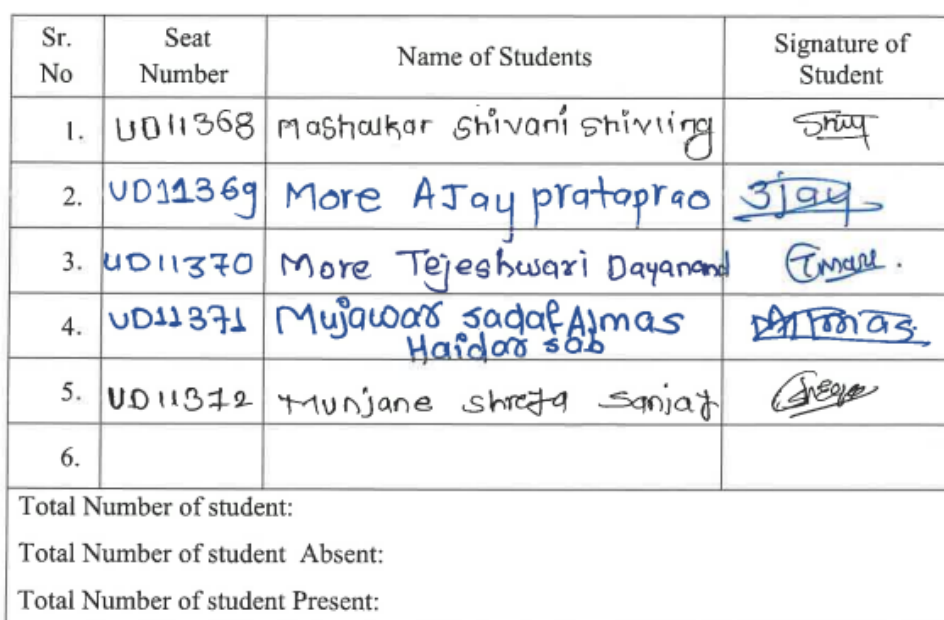 Sr. No Seat Number Name of Students Signature of Student
1. UD11368 Mashalkar Shivani Shivling
2. UD11369 More AJay prataprao Ajay
3. UD11370 More Tejeshwari Dayanand Tmore.
4. UD11371 Mujawar sadaf Almas Almas
Haidar sab
5. UD11372 Munjane shreya Sanjay
6.
Total Number of student:
Total Number of student Absent:
Total Number of student Present: